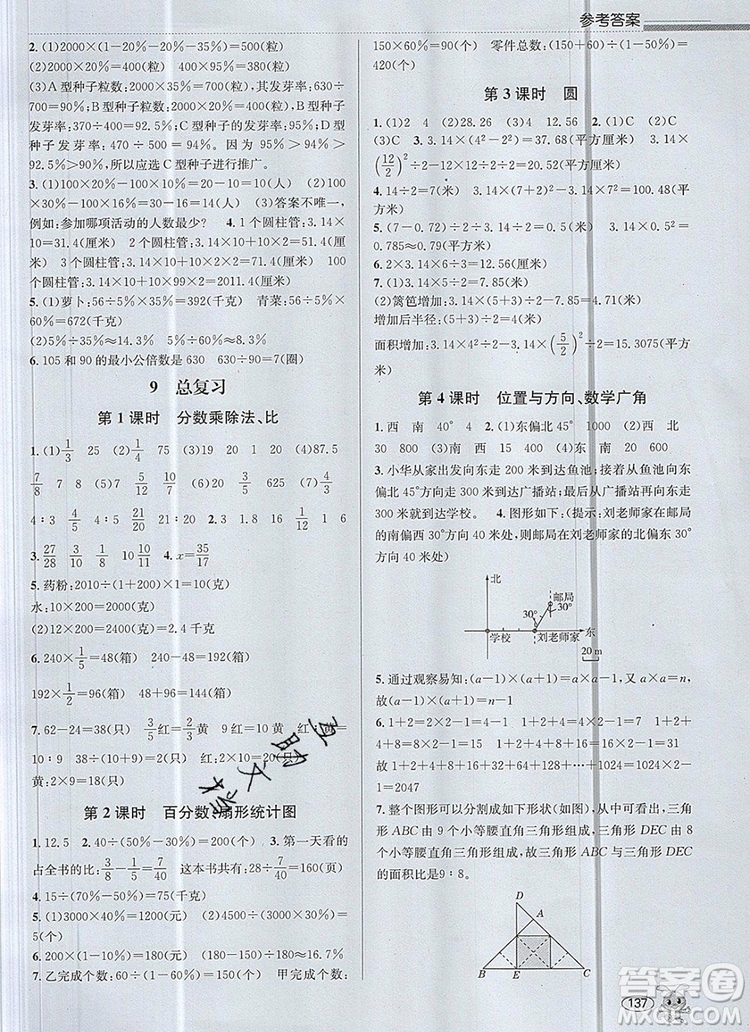 参考答案
2.(1)2000×(1-20%-20%-35%)=500(粒)
(2)2000×35%=700(粒) 2000×20%=400(粒)
(3)A型种子粒数:2000×35%=700(粒),其发芽率:630÷
700=90%;B型种子粒数:2000×20%=400(粒),其种子
发芽率:370÷400=92.5%;D型种子粒数:500粒,其种子
发芽率:470÷500=94%。因为95%>94%>
92.5%>90%,所以应选C型种子进行推广。
3.(1)100×30%=30(人) (2)100×(1-20%-
30%-10%-16%-8%)=16(人) (3)答案不唯一,
例如:参加哪项活动的人数最少? 4.1个圆柱管:3.14×
10+10=41.4(厘米) 2个圆柱管:3.14×10+10×2=
51.4(厘米) 3个圆柱管:3.14×10+10×4=71.4(厘米)
8个圆柱管:3.14×10+10×9×2=211.4(厘米)
5.(1)萝卜:56÷5%×35%=392(千克) 青菜:56÷5%×
60%=672(千克)
(2)5%÷35%≈14.3% (3)5%÷60%≈8.3%
6.105和90的最小公倍数是630 630÷90=7(圈)
9 总复习
第1课时 分数乘除法、比
1.(1)1/3 25 (2)24 100 (3)20 40 (4)87.5
7/8 7 8 (5)12/5 5/12 (6)120 625 (7)1/4 4/1
4∶5 4∶9 5∶9 (8)20 2.3 4/9 1/12 1 1 6
3.27/28 3/10 1/3 10 4.x=35/17
5.药粉:2010÷(1+200)=10(克)
水:10×200=2000(克)
(2)12×200=2400(克)=2.4千克
6.240×1/5=48(箱) 240-48=192(箱)
192×1/2=96(箱) 48+96=144(箱)
7.62-24=38(只) 3/5红=1/3黄 9红=5黄
10∶9 38÷(10+9)=2(只) 红:2×10=20(只)
黄:2×9=18(只) 红:20+2=22(只)
第2课时 百分数、扇形统计图
1.12.5 2.40÷(40+9960)=0.4% 3.第一天看的
占全书的比:7/40÷(1-3/8)=7/25=28/100=28%
4.15÷(70%-50%)=75(千克)
5.(1)3000×40%=1200(元) (2)3000÷(1200÷2)=
5(个)
6.200×(1-20%)=160(个) (160-120)÷240≈16.7%
7.乙完成个数:60÷(1-60%)=150(个) 甲完成个数:
150×60%=90(个) 零件总数:(150+60)÷(1-50%)=
420(个)
第3课时 圆
1.(1)2 4 (2)28.26 (3)4 12.56 2.(1)C (2)B
(3)C 3.3.14×(4²-2²)=37.68(平方厘米) 3.14×
(12/2)²÷2-12×2÷2=20.52(平方厘米)
4.14÷2=7(米) 3.14×7²=153.86(平方米)
5.(7-0.72)÷2÷3.14=1(米) 3.14×(1÷2)²=
0.785≈0.79(平方米)
6.2×3.14×3-2×3=12.56(厘米)
7.(1)3.14×3²÷2=14.13(平方米)
(2)篱笆增加:3.14×5÷2=7.85(米)
增加后半径:(5+3)÷2=4(米)
面积增加:3.14×4²÷2-3.14×(5/2)²÷2=15.3075(平方
米)
第4课时 位置与方向、数学广角
1.西 南 40° 4 2.(1)东偏北45°1000 北 西
30 800 (3)南 西 40 400 (4)南偏东60°1000
3.小华从家出发向东走200米到达鱼池;接着从鱼池向南
偏东45°方向走300米到达广播站;从广播站再向东走
300米到达学校。 4.图形如下:(提示:刘老师家在邮局
的南偏西30°方向40米处,则邮局在刘老师家的北偏东30°
方向40米处)
北
邮局
30°
30°
学校 刘老师家 东
20 m
5.通过观察易知:(a-1)×(a+1)=a×a-1=a²-1
故(a-1)×(a+1)=n-1
6.1+2=2×2-1=3 1+2+4=2×4-1=7 1+2+
4+8=2×8-1=15 1+2+4+8+16=2×16-1=31
1+2+4+8+16+32+…+1024=2×1024-
1=2047
7.整个图形可以分割成如下形状(如图):可以得出,三角
形ABC由9个小等腰直角三角形组成,三角形DEC由8
个小等腰直角三角形组成,故三角形ABC与三角形DEC
的面积比是9∶8。
D
A
B E C
互助文档
137
答案圈
MXQE.COM